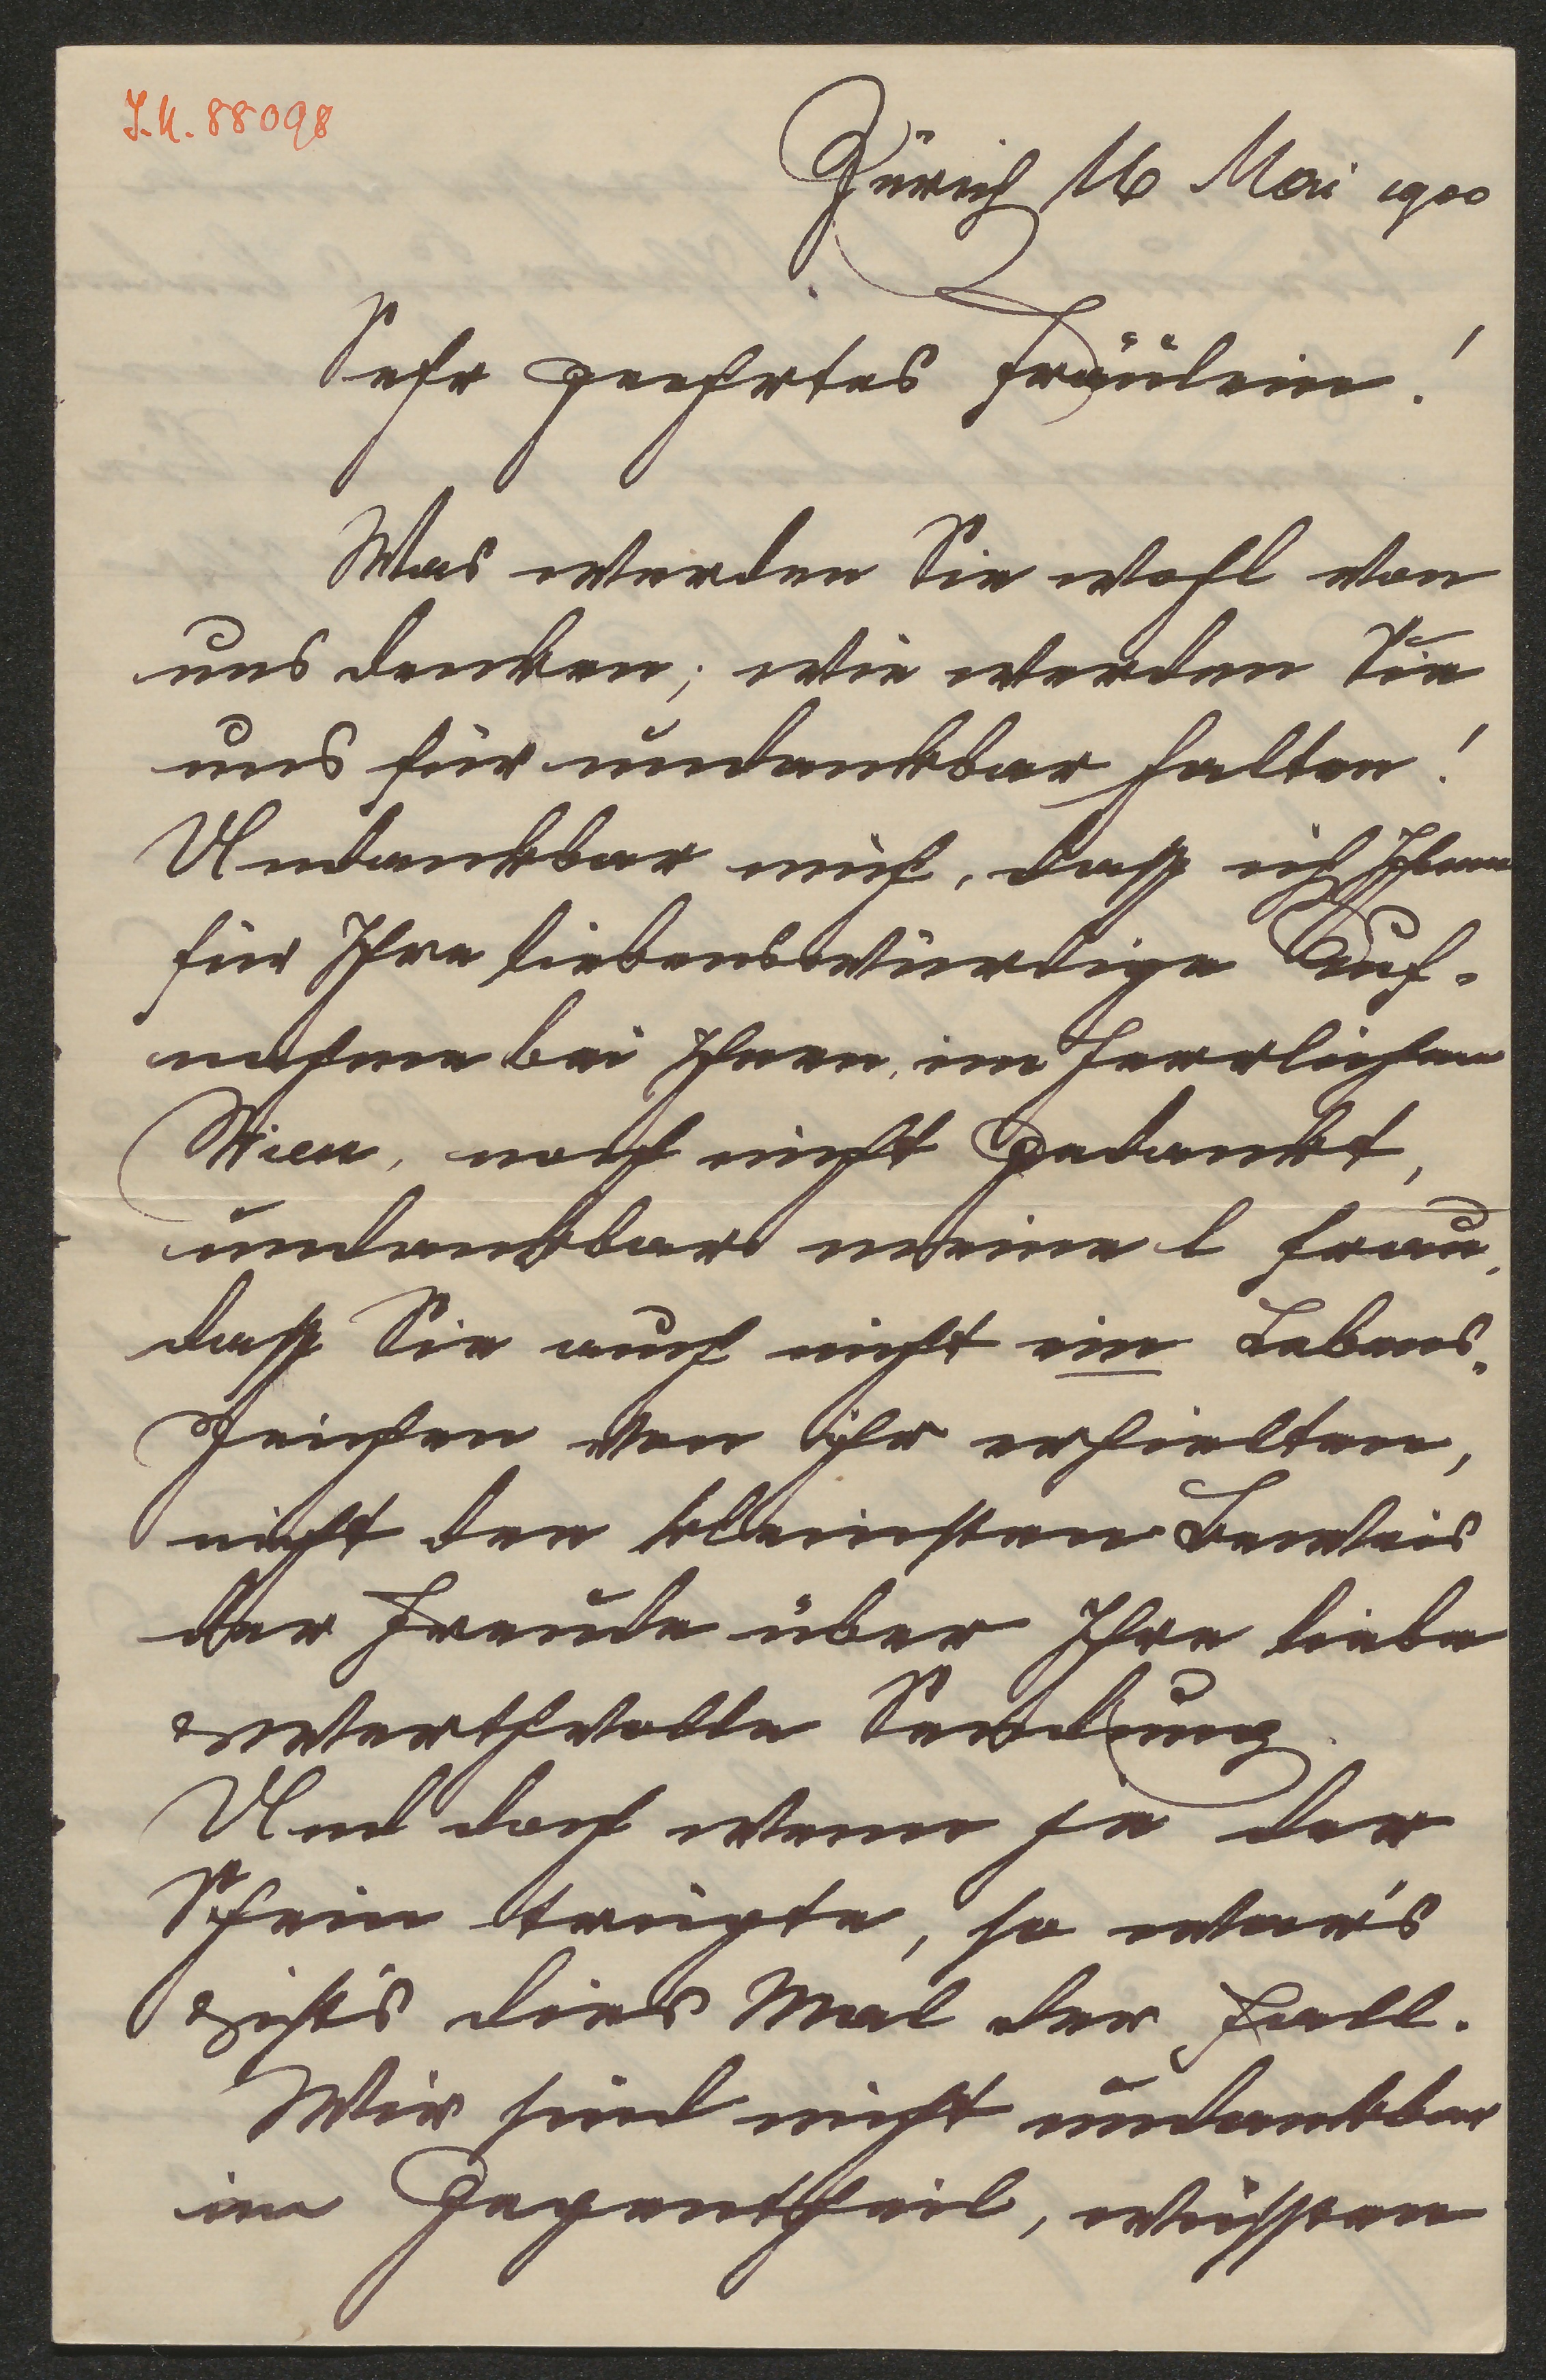 J.N. 88098
Zürich 16 Mai 1900
Sehr geehrtes Fräulein!
Was werden Sie wohl von
uns denken; wie werden Sie
uns für undankbar halten!
Undankbar mich, dass ich Ihnen
für Ihre liebenswürdige Auf-
nahme bei Ihnen, im herrlichen
Wien, noch nicht gedankt,
undankbar meine l Frau,
dass Sie auch nicht ein Lebens-
zeichen von ihr erhielten,
nicht den kleinsten Beweis
der Freude über Ihre liebe
& werthvolle Sendung.
Und doch wenn je der
Schein trügte, so war's
& ist's dies Mal der Fall.
Wir sind nicht undankbar
im Gegentheil, wüssten